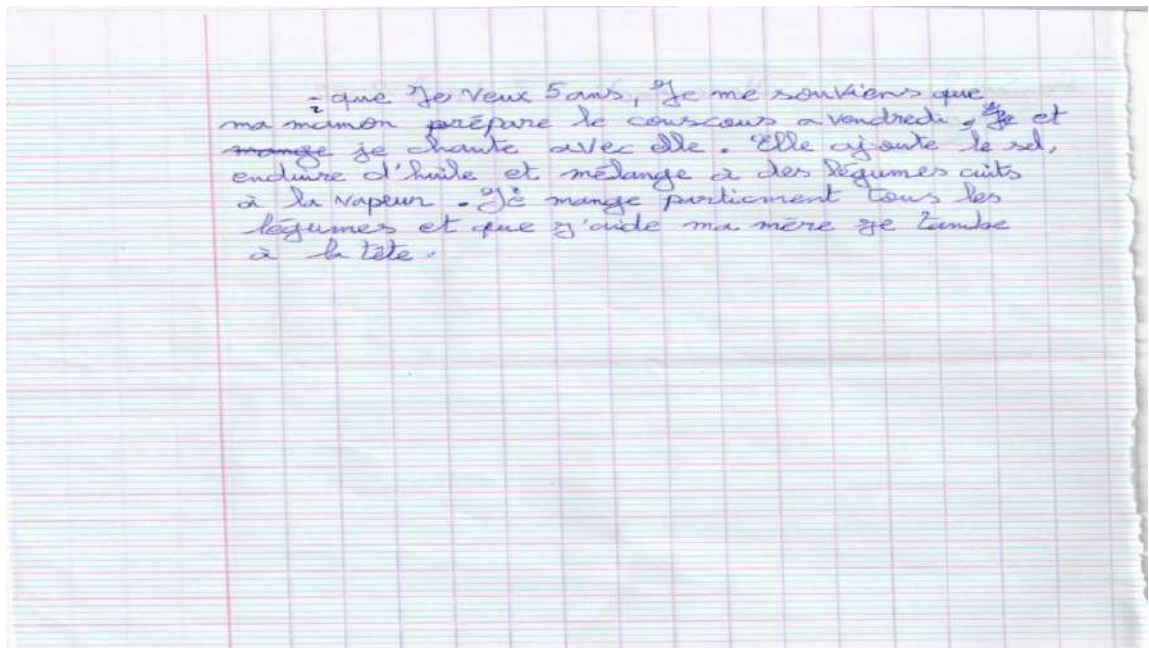 - que Je veux 5 ans, Je me souviens que
ma mamon prépare le couscous a vendredi, et
mange je chante avec elle. Elle ajoute le sel,
enduire d'huile et mélange a des légumes cuits
à la vapeur. Je mange particment tous les
légumes et que j'aide ma mère je tambe
à la tête.